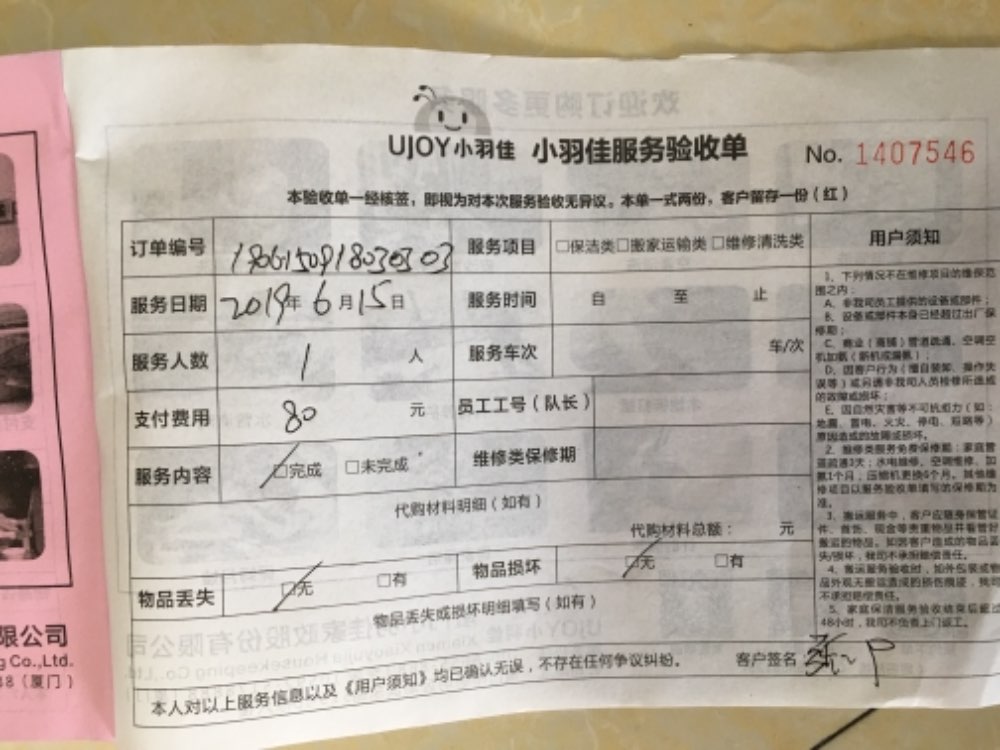 UJOY小羽佳 小羽佳服务验收单 No. 1407546
本验收单一经核签，即视为对本次服务验收无异议。本单一式两份，客户留存一份（红）
订单编号 服务项目 □保洁类□搬家运输类□维修清洗类
服务日期 2019年6月15日 服务时间 自 至 止
服务人数 1 人 服务车次 车/次
支付费用 80 元 员工工号（队长）
服务内容 □完成 □未完成 维修类保修期
代购材料明细（如有）
代购材料总额： 元
物品丢失 □无 □有 物品损坏 □无 □有
物品丢失或损坏明细填写（如有）
本人对以上服务信息以及《用户须知》均已确认无误，不存在任何争议纠纷。 客户签名
用户须知
1、下列情况不在维修项目的维保范
围之内：
A、非我司员工提供的设备或部件；
B、设备或部件本身已经超过出厂保
修期；
C、商业（商铺）管道疏通，空调空
D、因客户行为（擅自装卸、操作失
误等）或另请非我司人员检修所造成
的故障或损坏；
E、因自然灾害等不可抗力（如：
地震、雷电、火灾、停电、短路等）
原因造成的故障或损坏。
2、维修类服务免费保修期：家庭管
道疏通3天；水电维修、空调维修、加
氟1个月；压缩机更换6个月。其他维
修项目以服务验收单填写的保修期为
准。
3、搬运服务中，客户应随身保管证
件、首饰、现金等贵重物品并看管好
搬运的物品。如因客户造成的物品丢
失/损坏，我司不承担赔偿责任。
4、搬运服务验收时，如外包装或物
品外观无撞击造成的损伤痕迹，我司
不承担赔偿责任。
5、家庭保洁服务验收结束后超过
48小时，我司不负责上门返工。
限公司
g Co.,Ltd.
（厦门）